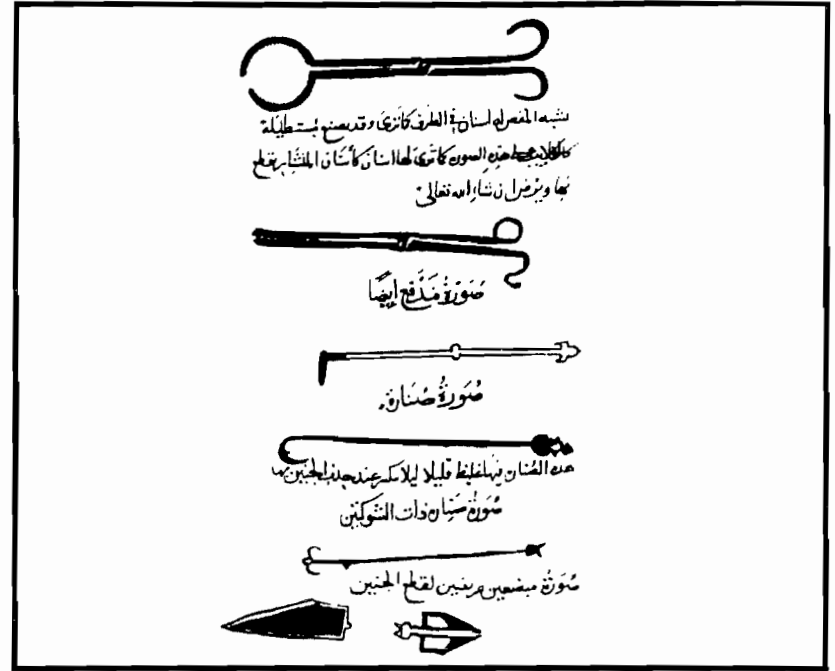 يشبه المقص له اسنان في الطرف كما ترى وقد يصنع مستطيلة
هذه الصورة كما ترى لها اسنان كأسنان المنشار يقطع
بها ويرض ان شاء الله تعالى
صُورَةُ مَدْفَع ايضًا
صُورَةُ صنارة.
هذه الصنارة فيها غلظ قليلا ليلا تنكسر عند جذب الجنين بها
صُورَةُ صنارة ذات الشوكتين
صُورَةُ مبضعين عريضين لقطع الجنين